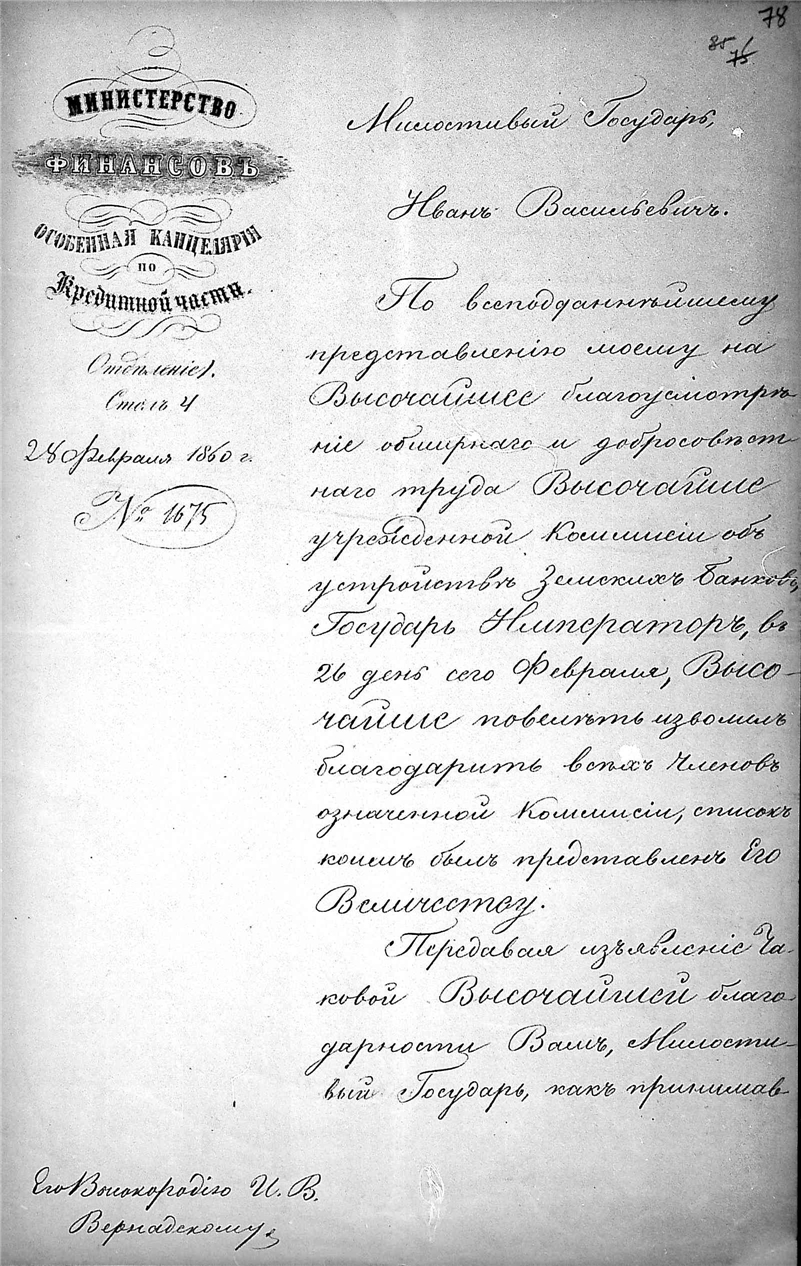 78
85
75
МИНИСТЕРСТВО
ФИНАНСОВЪ
ОСОБЕННАЯ КАНЦЕЛЯРІЯ
ПО
Кредитной части.
Отдѣленіе 1.
Столъ 4
28 Февраля 1860 г.
№ 1675
Милостивый Государь,
Иванъ Васильевичъ.
По всеподданнѣйшему
представленію моему на
Высочайшее благоусмотрѣ-
ніе обширнаго и добросовѣст
наго труда Высочайше
учрежденной Коммисіи объ
устройствѣ Земскихъ Банковъ,
Государь Императоръ, въ
26 день сего Февраля, Высо-
чайше повелѣть изволилъ
благодарить всѣхъ Членовъ
означенной Коммисіи, списокъ
коимъ былъ представленъ Его
Величеству.
Передавая изъявленіе та-
ковой Высочайшей благо
дарности Вамъ, Милости-
вый Государь, какъ принимав
Его Высокородію И. В.
Вернадскому